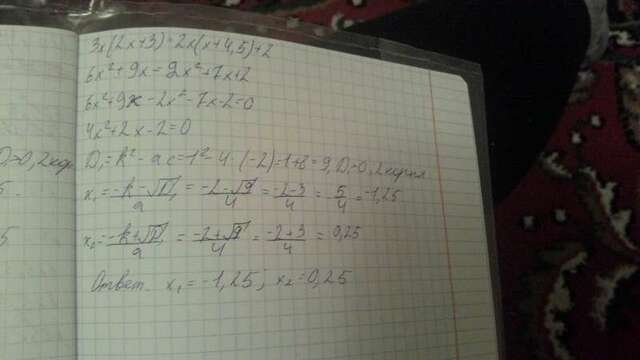 3x(2x+3)=2x(x+4,5)+2
6x²+9x=2x²+7x+2
6x²+9x-2x²-7x-2=0
4x²+2x-2=0
D₁=k²-ac=1²-4·(-2)=1+8=9, D>0, 2 корня
x₁=\frac{-k-\sqrt{D_1}}{a}=\frac{-2-\sqrt{9}}{4}=\frac{-2-3}{4}=\frac{5}{4}=-1,25
x₂=\frac{-k+\sqrt{D_1}}{a}=\frac{-2+\sqrt{9}}{4}=\frac{-2+3}{4}=0,25
Ответ. x₁=-1,25; x₂=0,25
D>0, 2 кор.
5